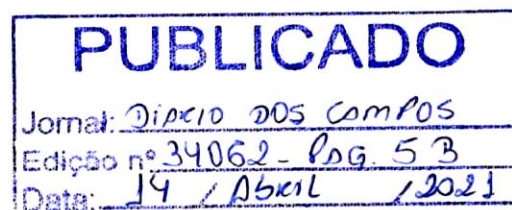 PUBLICADO
Jornal: DIÁRIO DOS CAMPOS
Edição nº 34062 - PÁG. 5 B
Data: 14 / ABRIL / 2021